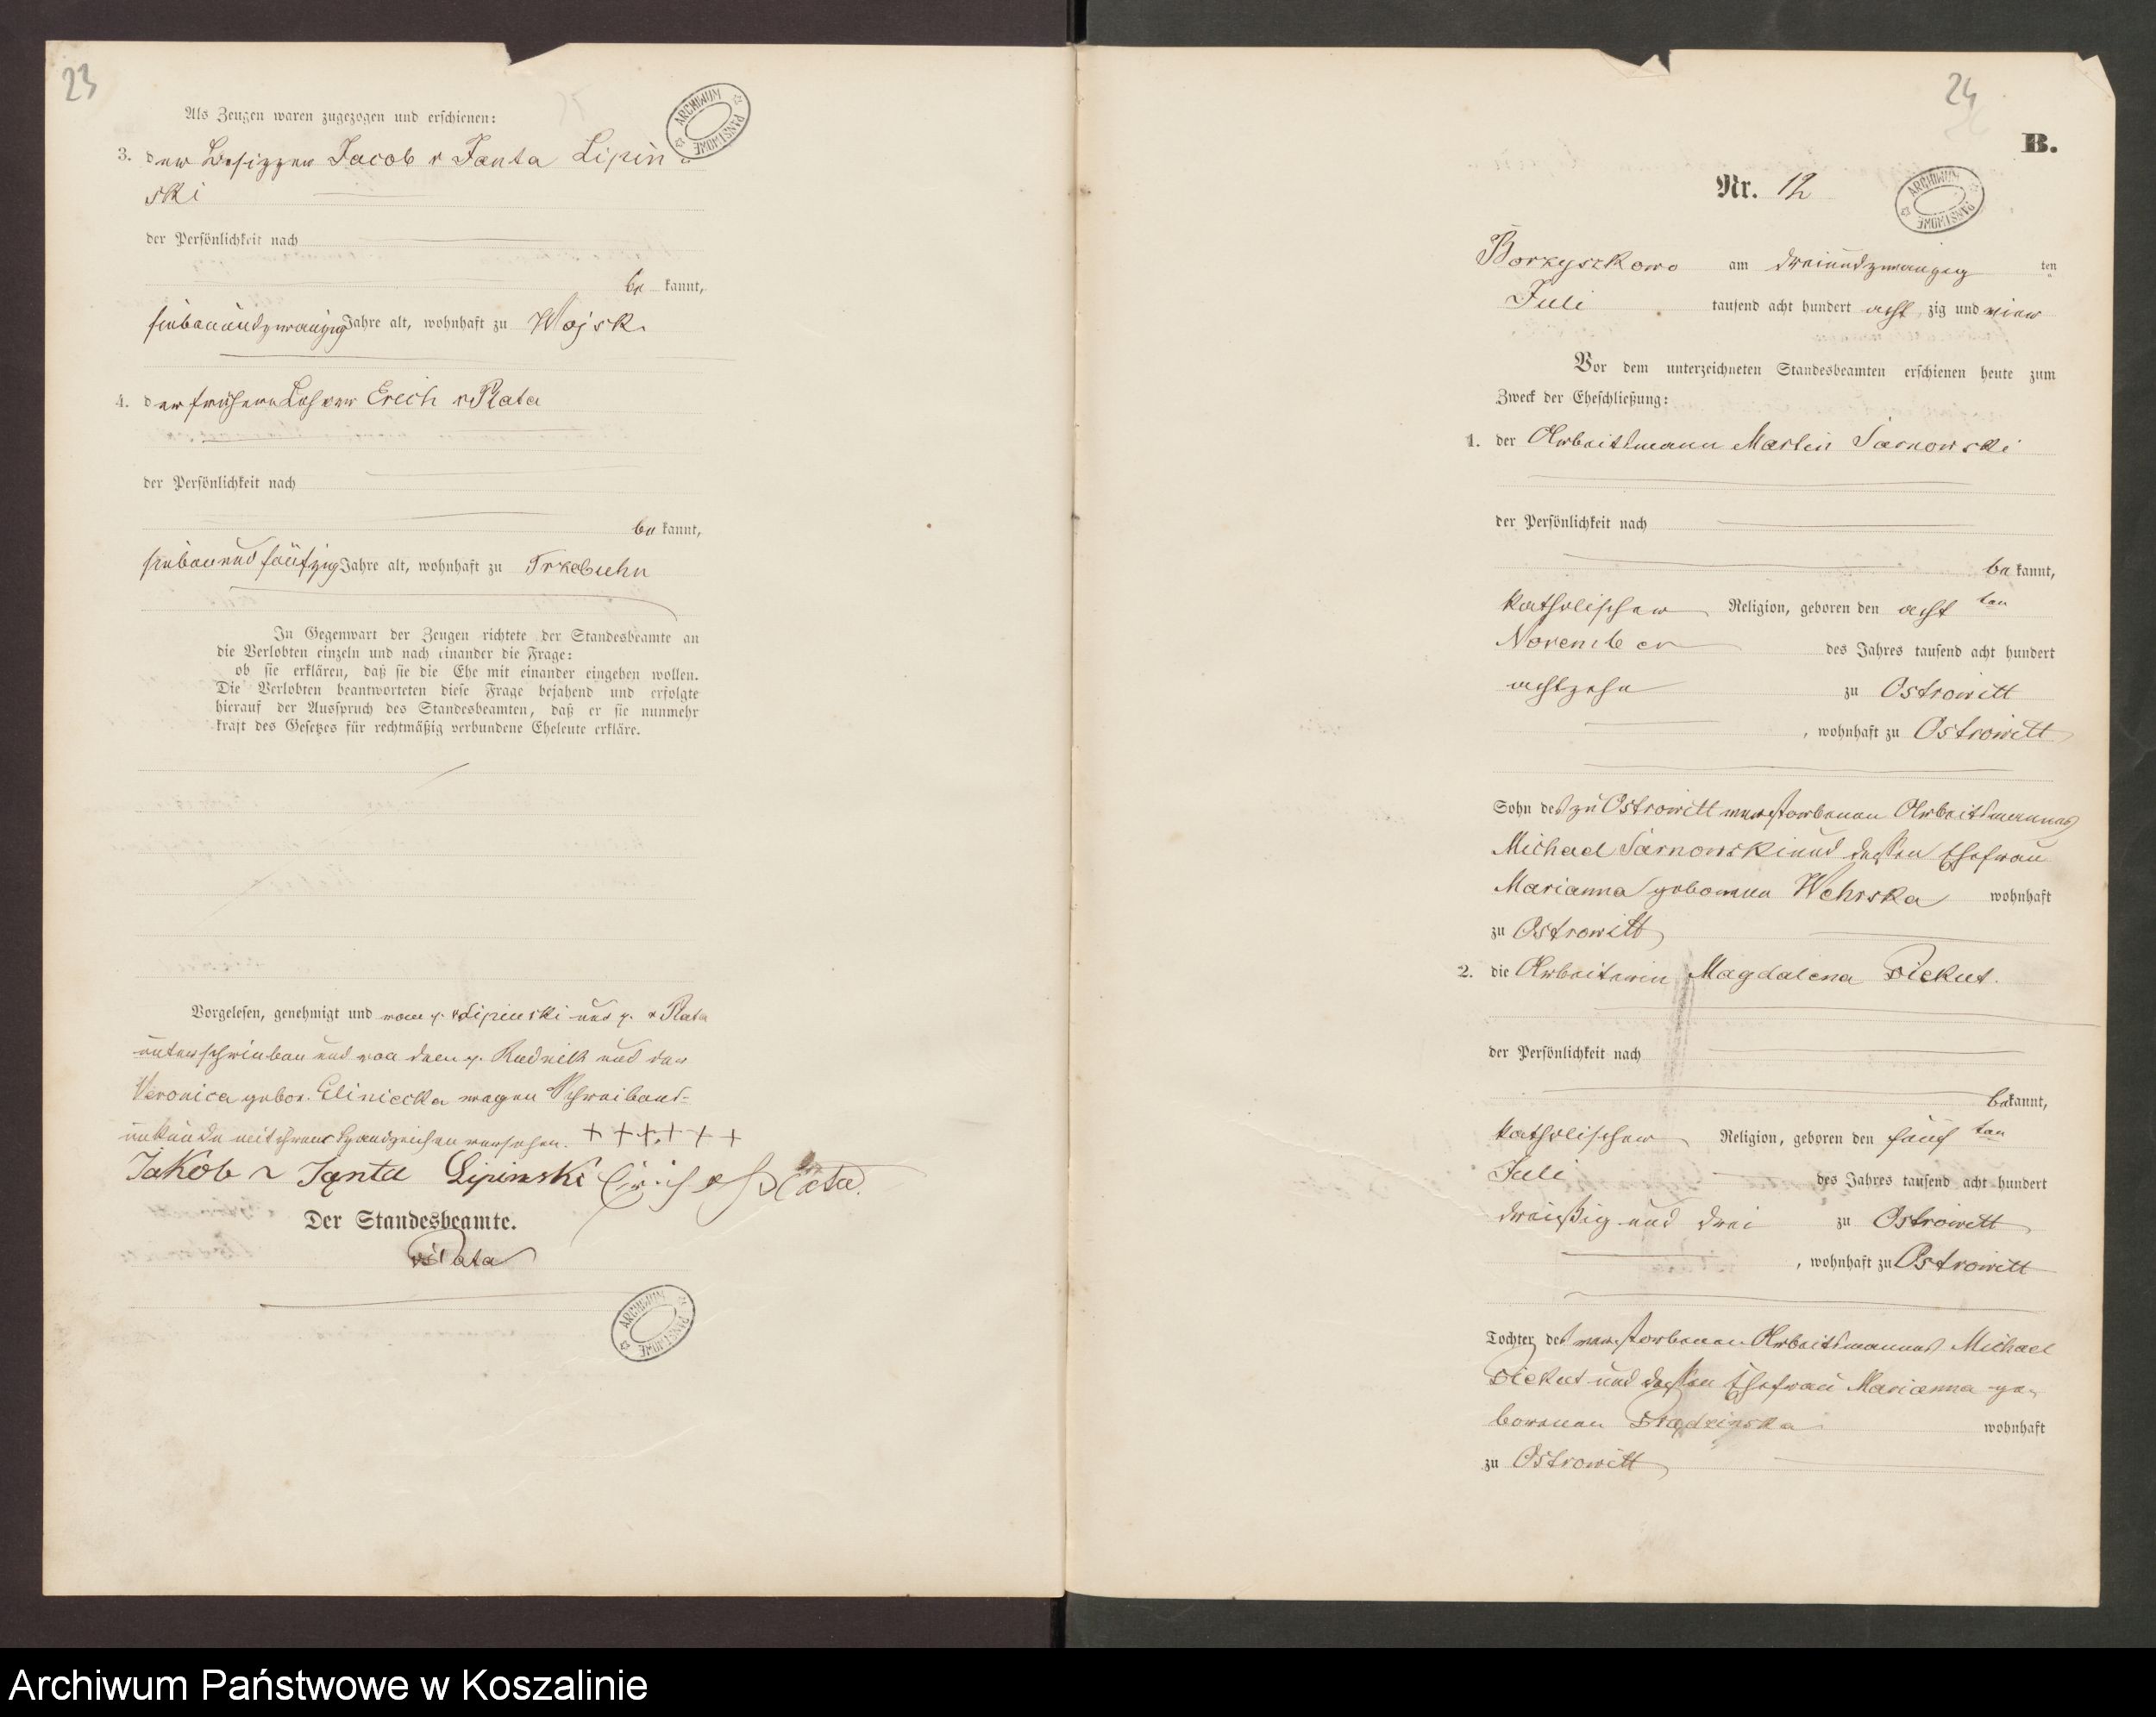 23
Als Zeugen waren zugezogen und erschienen:
ARCHIWUM PAŃSTWOWE
3. der Besitzer Jacob v Janta Lipin-
ski
der Persönlichkeit nach
be kannt,
siebenundzwanzig Jahre alt, wohnhaft zu Wojsk
4. der frühere Erich v Plata
der Persönlichkeit nach
be kannt,
siebenundfünfzig Jahre alt, wohnhaft zu Trzebuhn
In Gegenwart der Zeugen richtete der Standesbeamte an
die Verlobten einzeln und nach einander die Frage:
ob sie erklären, daß sie die Ehe mit einander eingehen wollen.
Die Verlobten beantworteten diese Frage bejahend und erfolgte
hierauf der Ausspruch des Standesbeamten, daß er sie nunmehr
kraft des Gesetzes für rechtmäßig verbundene Eheleute erkläre.
Vorgelesen, genehmigt und von p. v Lipinski und p. v Plata
unterschrieben und von dem p. Rudnik und der
Veronica gebor. Gliniecka wegen Schreibens-
unkunde mit ihrem Handzeichen versehen. + + + + + +
Jakob v Janta Lipinski Erich v Plata.
Der Standesbeamte.
v Plata
ARCHIWUM PAŃSTWOWE
24
B.
Nr. 12
ARCHIWUM PAŃSTWOWE
Borzyszkowo am dreiundzwanzig ten
Juli tausend acht hundert acht zig und vier
Vor dem unterzeichneten Standesbeamten erschienen heute zum
Zweck der Eheschließung:
1. der Arbeitsmann Martin Sarnowski
der Persönlichkeit nach
be kannt,
katholischer Religion, geboren den acht ten
November des Jahres tausend acht hundert
achtzehn zu Ostrowitt
, wohnhaft zu Ostrowitt
Sohn des zu Ostrowitt verstorbenen Arbeitsmannes
Michael Sarnowski und dessen Ehefrau
Marianna geborenen Wehrska wohnhaft
zu Ostrowitt
2. die Arbeiterin Magdalena Piekut.
der Persönlichkeit nach
be kannt,
katholischer Religion, geboren den fünf ten
Juli des Jahres tausend acht hundert
dreißig und drei zu Ostrowitt
, wohnhaft zu Ostrowitt
Tochter des verstorbenen Arbeitsmannes Michael
Piekut und dessen Ehefrau Marianna ge-
borenen wohnhaft
zu Ostrowitt
Archiwum Państwowe w Koszalinie